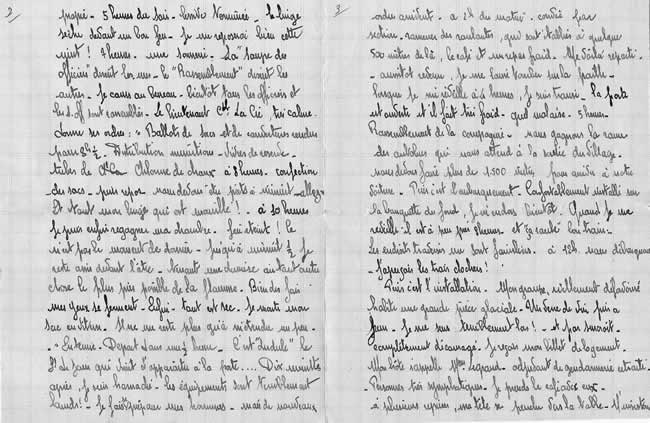 2
propre - 5 heures du soir - Corvée Normières - Le linge
sèche devant un bon feu - Je me reposerai bien cette
nuit ! 7 heures - une sonnerie - La "soupe des
officiers" disent les uns - le "Rassemblement" disent les
autres - Je cours au bureau - bientôt tous les officiers et
sous-off sont rassemblés - Le lieutenant Ct La Cie, très calme
donne ses ordres : " Ballots de sacs et de couvertures rendus
pour 8h ½ - Distribution munitions - vivres de
- Colonne de chaux à 8 heures - confection
des sacs - puis repos - nous devons être prêts à minuit - allez
Et tout mon linge qui est mouillé ! - à 10 heures
Je puis enfin regagner ma chambre - Feu éteint ! Ce
n'est pas le moment de dormir - Jusqu'à minuit ½ Je
reste assis devant l'âtre - tenant une chemise ou tout autre
chose le plus près possible de la flamme - Bien des fois
mes yeux se ferment - Enfin - tout est sec - Je monte mon
sac - Il ne me reste plus qu'à m'étendre un peu -
- "Entrez - Départ dans une ½ heure - C'est " le
St de Jour qui vient d'apparaître à la porte .... Dix minutes
après, je suis harnaché - les équipements sont terriblement
lourds ! - Je fais préparer mes hommes - mais de nouveaux
3
ordres arrivent - à 2h du matin - corvée par
section - ramener des roulantes, qui sont établies à quelque
500 mètres de là, le café et un repas froid - Me voilà reparti
- aussitôt rendu - Je me laisse tomber sur la paille -
Lorsque je me réveille à 4 heures, Je suis transi - La porte
est ouverte et il fait très froid - quel malaise - 5 heures -
Rassemblement de la compagnie - nous gagnons la rame
des autobus qui nous attend à la sortie du village -
nous devons faire plus de 1.500 mètres, pour arriver à notre
voiture - Puis c'est l'embarquement - Confortablement installé sur
la banquette du fond, je m'endors bientôt - Quand Je me
réveille il est à peu près 9 heures - et
Les endroits traversés me sont familiers - à 12h nous débarquons
- J'aperçois les trois clochers !
Puis c'est l'installation - Une grange, vieillement défavorisé
habite une grande pièce glaciale - Un verre de vin pris à
jeun - Je me sens terriblement las ! - et pas
complètement découragé - Je reçois mon billet de logement -
Mon hôte s'appelle Mme Legrand - adjudant de gendarmerie retraité -
- Personnes très sympathiques - Je prends le café avec eux -
- à plusieurs reprises, ma tête se penche vers la table -